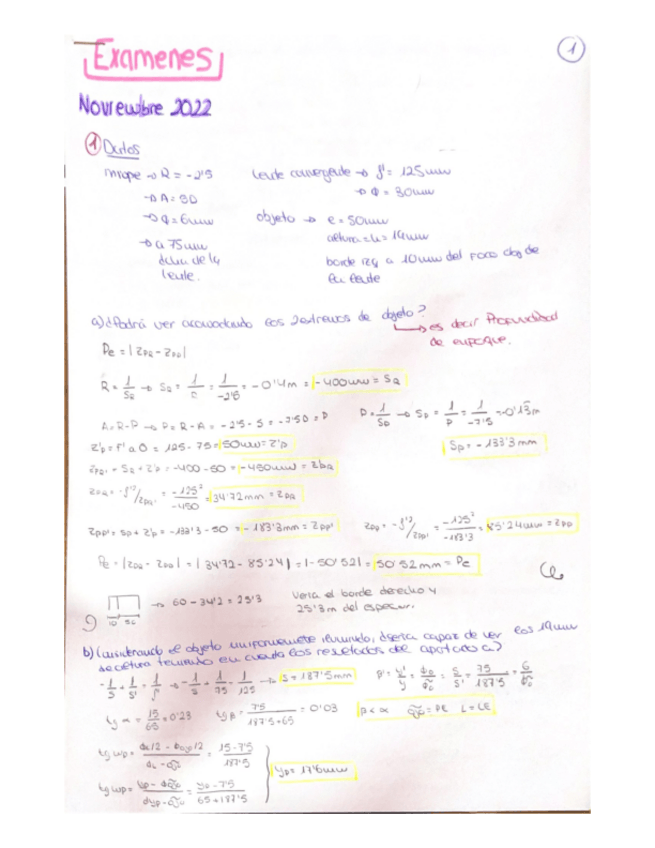 Examenes
1
Noviembre 2022
1 Datos
miope → R = -2'5
lente convergente → f' = 125mm
→ A = 5D
→ φ = 30mm
→ φ = 6mm
objeto → e = 50mm
→ a 75mm
altura = h = 19mm
dcha de la
lente.
borde izq a 10mm del foco obj de
la lente
a) ¿Podrá ver acomodando los 2 extremos de objeto?
→ es decir Profundidad
de enfoque.
Pe = |ZPR - ZPP|
R = 1/SR → SR = 1/R = 1/-2'5 = -0'4m = -400mm = SR
A = R-P → P = R-A = -2'5 - 5 = -7'50 = P
P = 1/SP → SP = 1/P = 1/-7'5 = -0'13m
Z'p = F'aO = 125 - 75 = 50mm = Z'p
SP = -133'3mm
ZPR' = SR + Z'p = -400 - 50 = -450mm = ZPR
ZPR = -f'²/ZPR' = -125²/-450 = 34'72mm = ZPR
ZPP' = SP + Z'p = -133'3 - 50 = -183'3mm = ZPP'
ZPP = -f'²/ZPP' = -125²/-183'3 = 85'24mm = ZPP
Pe = |ZPR - ZPP| = |34'72 - 85'24| = |-50'52| = 50'52mm = Pe
→ 60 - 34'2 = 25'3
Vería el borde derecho y
10 50
25'3m del espesor.
b) Considerando el objeto uniformemente iluminado, ¿sería capaz de ver los 19mm
de altura teniendo en cuenta los resultados del apartado a?
-1/S + 1/S' = 1/f' → -1/S + 1/75 = 1/125 → S = 187'5mm
β' = y'/y = = S/S' = 75/187'5 = 6/
tg α = 15/65 = 0'23
tg β = 7'5/187'5+65 = 0'03
β < α
= PE L = LE
tg wp = = 15-7'5/187'5
tg wp = = yp - 7'5/65+187'5
yp = 17'6mm